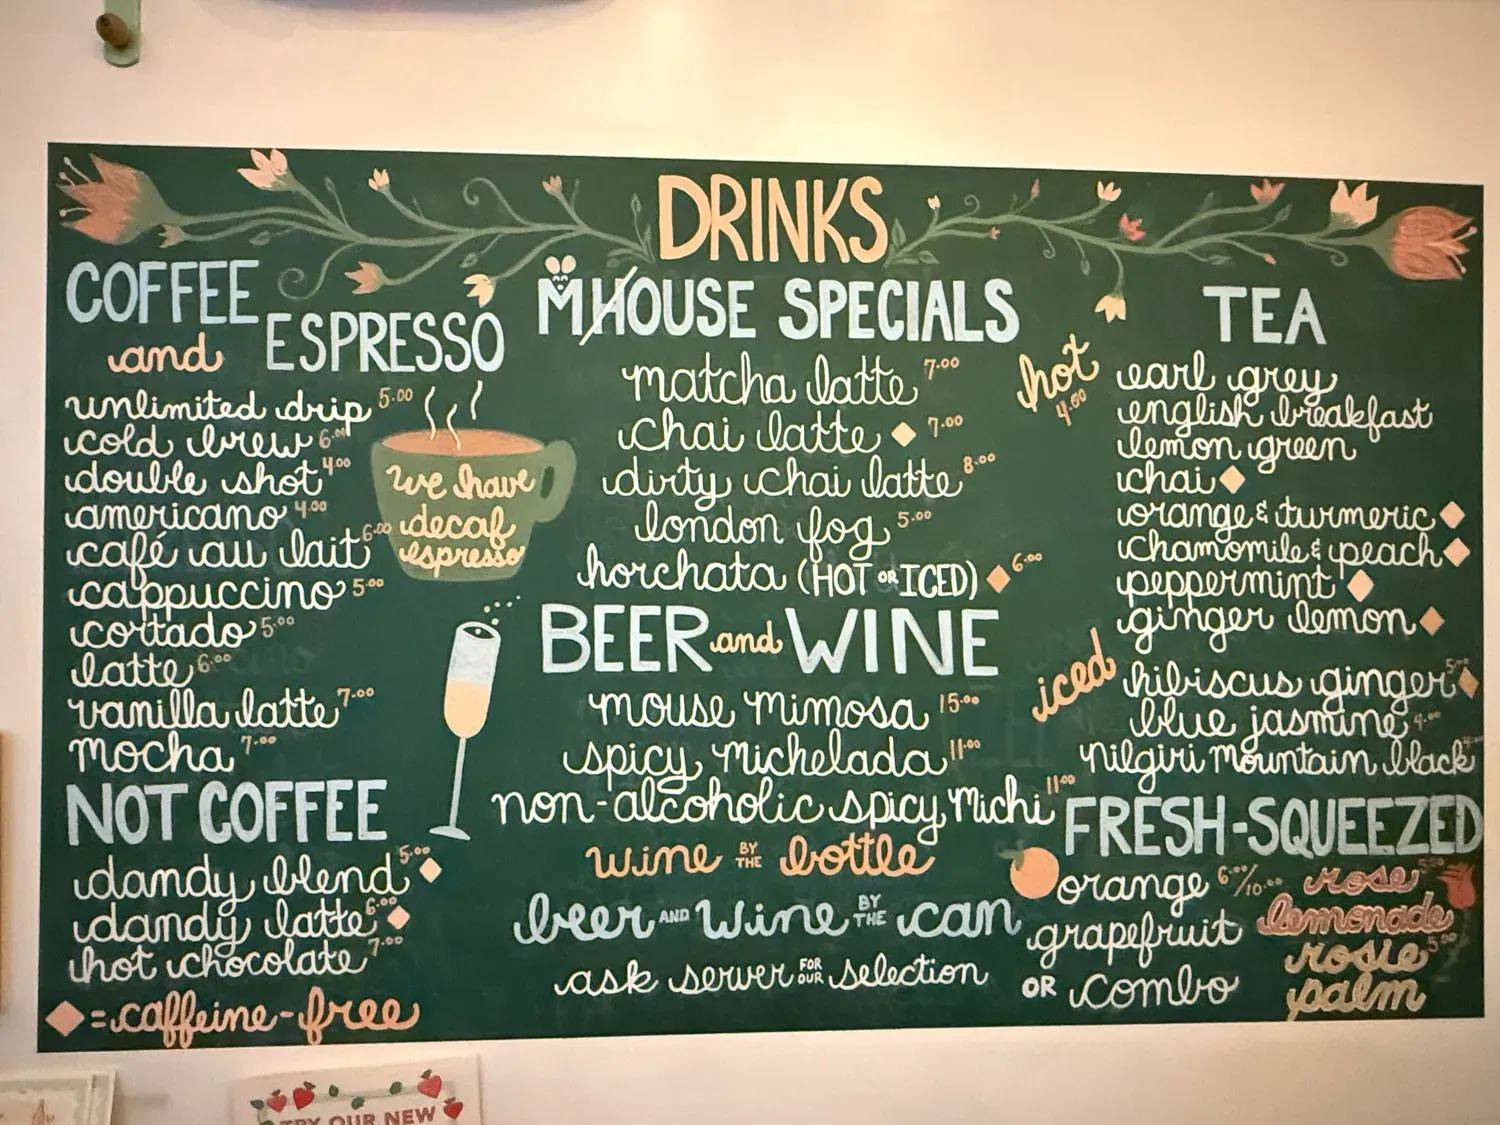 DRINKS
COFFEE
and ESPRESSO
unlimited drip 5.00
cold brew 6.00
double shot 4.00
americano 4.00
café au lait 6.00
cappuccino 5.00
cortado 5.00
latte 6.00
vanilla latte 7.00
mocha 7.00
we have
decaf
espresso
NOT COFFEE
dandy blend 5.00
dandy latte 6.00
hot chocolate 7.00
= caffeine-free
MHOUSE SPECIALS
matcha latte 7.00
chai latte 7.00
dirty chai latte 8.00
london fog 5.00
horchata (HOT OR ICED) 6.00
BEER and WINE
mouse mimosa 15.00
spicy michelada 11.00
non-alcoholic spicy michi 11.00
wine BY THE bottle
beer AND wine BY THE can
ask server FOR OUR selection
TEA
hot
4.50
earl grey
english breakfast
lemon green
chai
orange & turmeric
chamomile & peach
peppermint
ginger lemon
iced
hibiscus ginger 5.00
blue jasmine 4.00
nilgiri mountain black
FRESH-SQUEEZED
orange 6.00/10.00
grapefruit
OR combo
rose 5.00
lemonade
rosie 5.00
palm
TRY OUR NEW